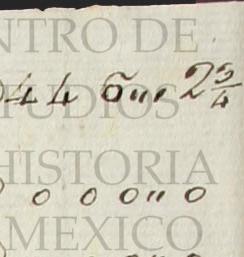 NTRO DE
44 6,,, 2 3/4
TUDIOS
HISTORIA
0 0 0,, 0
MEXICO